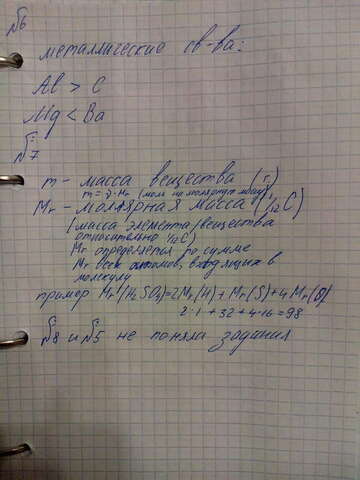 №6
металлические св-ва:
Al > C
Mg < Ba
№7
m - масса вещества (г)
m = ν · Mr (моль на молярную массу)
Mr - молярная масса (1/12 C)
(масса элемента/вещества
относительно 1/12 C)
Mr определяется по сумме
Mr всех атомов, входящих в
молекулу
пример Mr(H2SO4)=2Mr(H)+Mr(S)+4Mr(O)
2·1+32+4·16=98
№8 и №5 не поняла задания